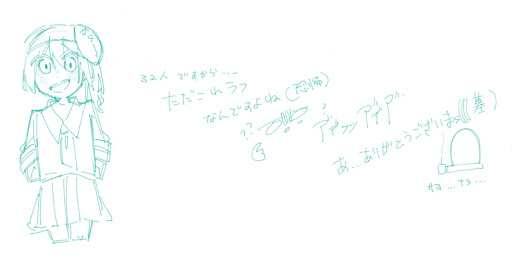 32人ですから…
ただこれラフ
なんですよね(恐怖)
??
アァッアァア
あ…ありがとうございまs(((墓)